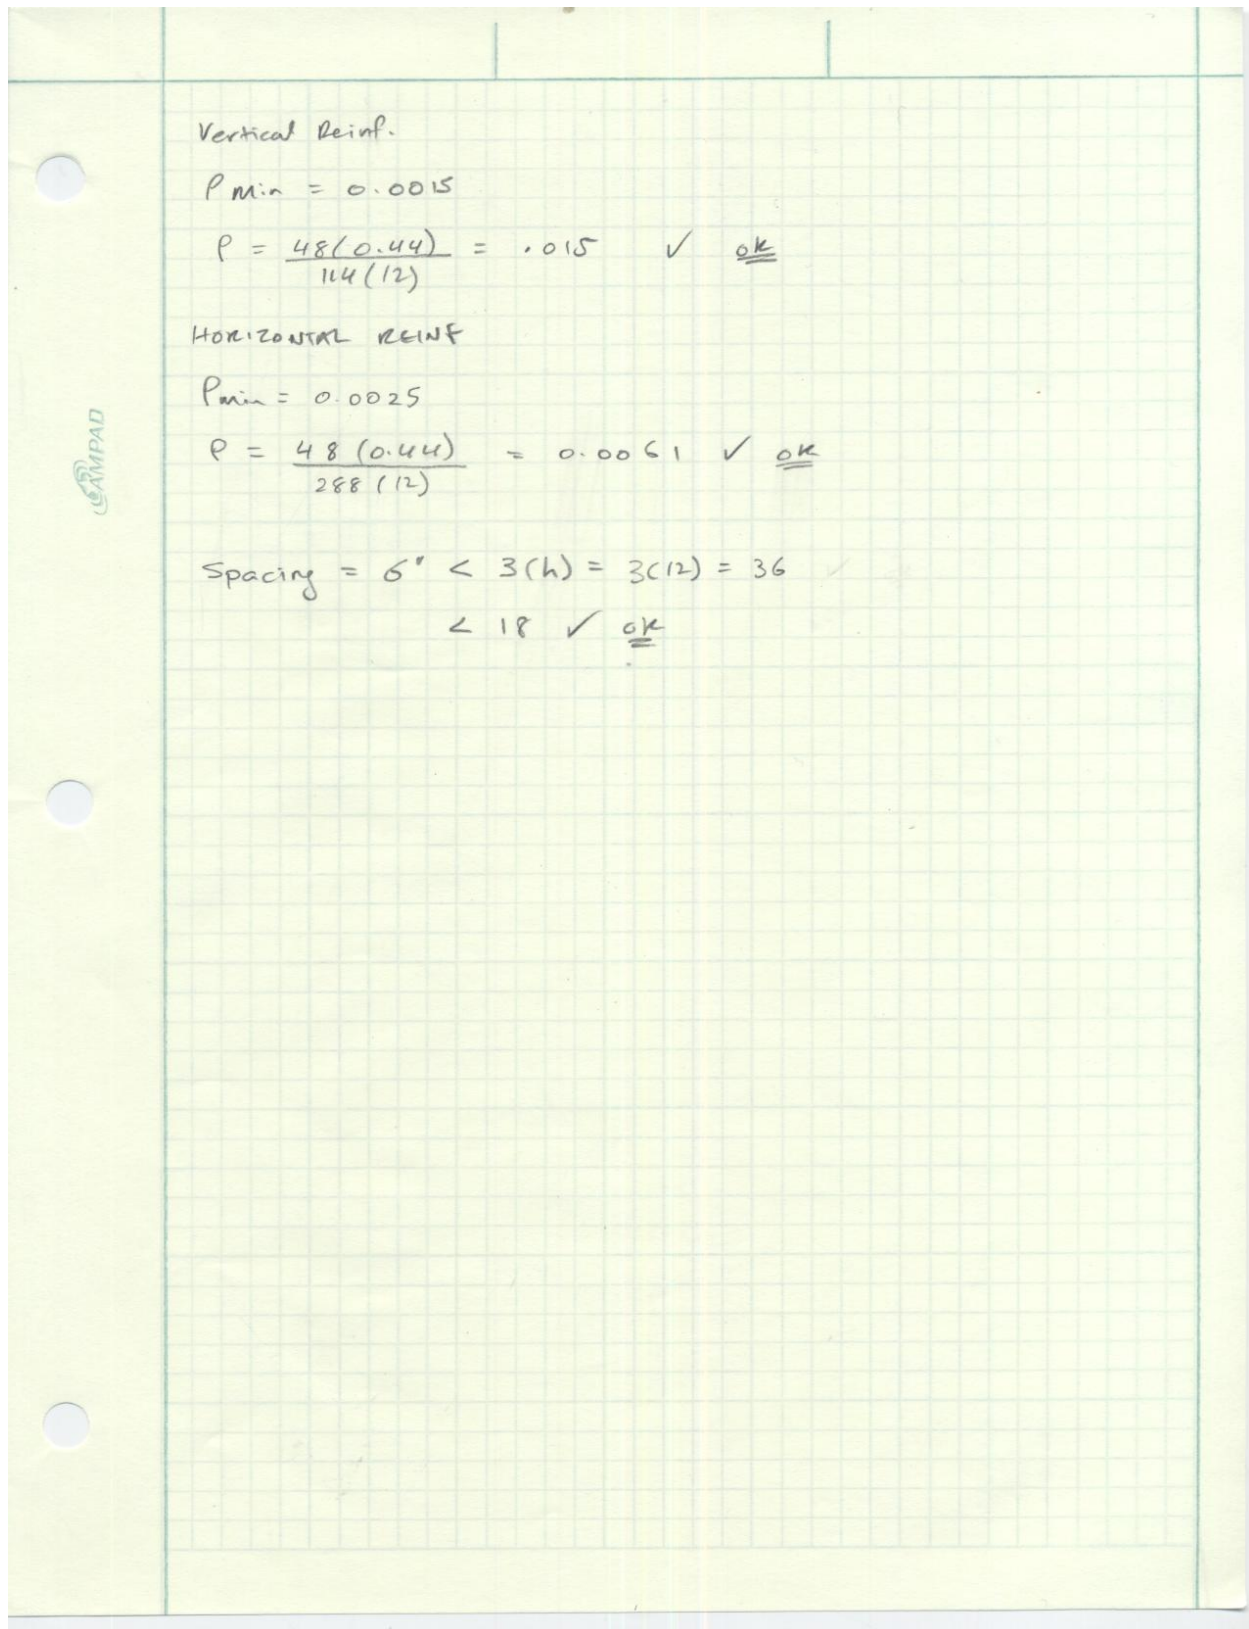 Vertical Reinf.
ρ min = 0.0015
ρ = 48(0.44) / 114(12) = .015 ✓ ok
HORIZONTAL REINF
ρmin = 0.0025
ρ = 48(0.44) / 288(12) = 0.0061 ✓ ok
Spacing = 6" < 3(h) = 3(12) = 36
< 18 ✓ ok
AMPAD